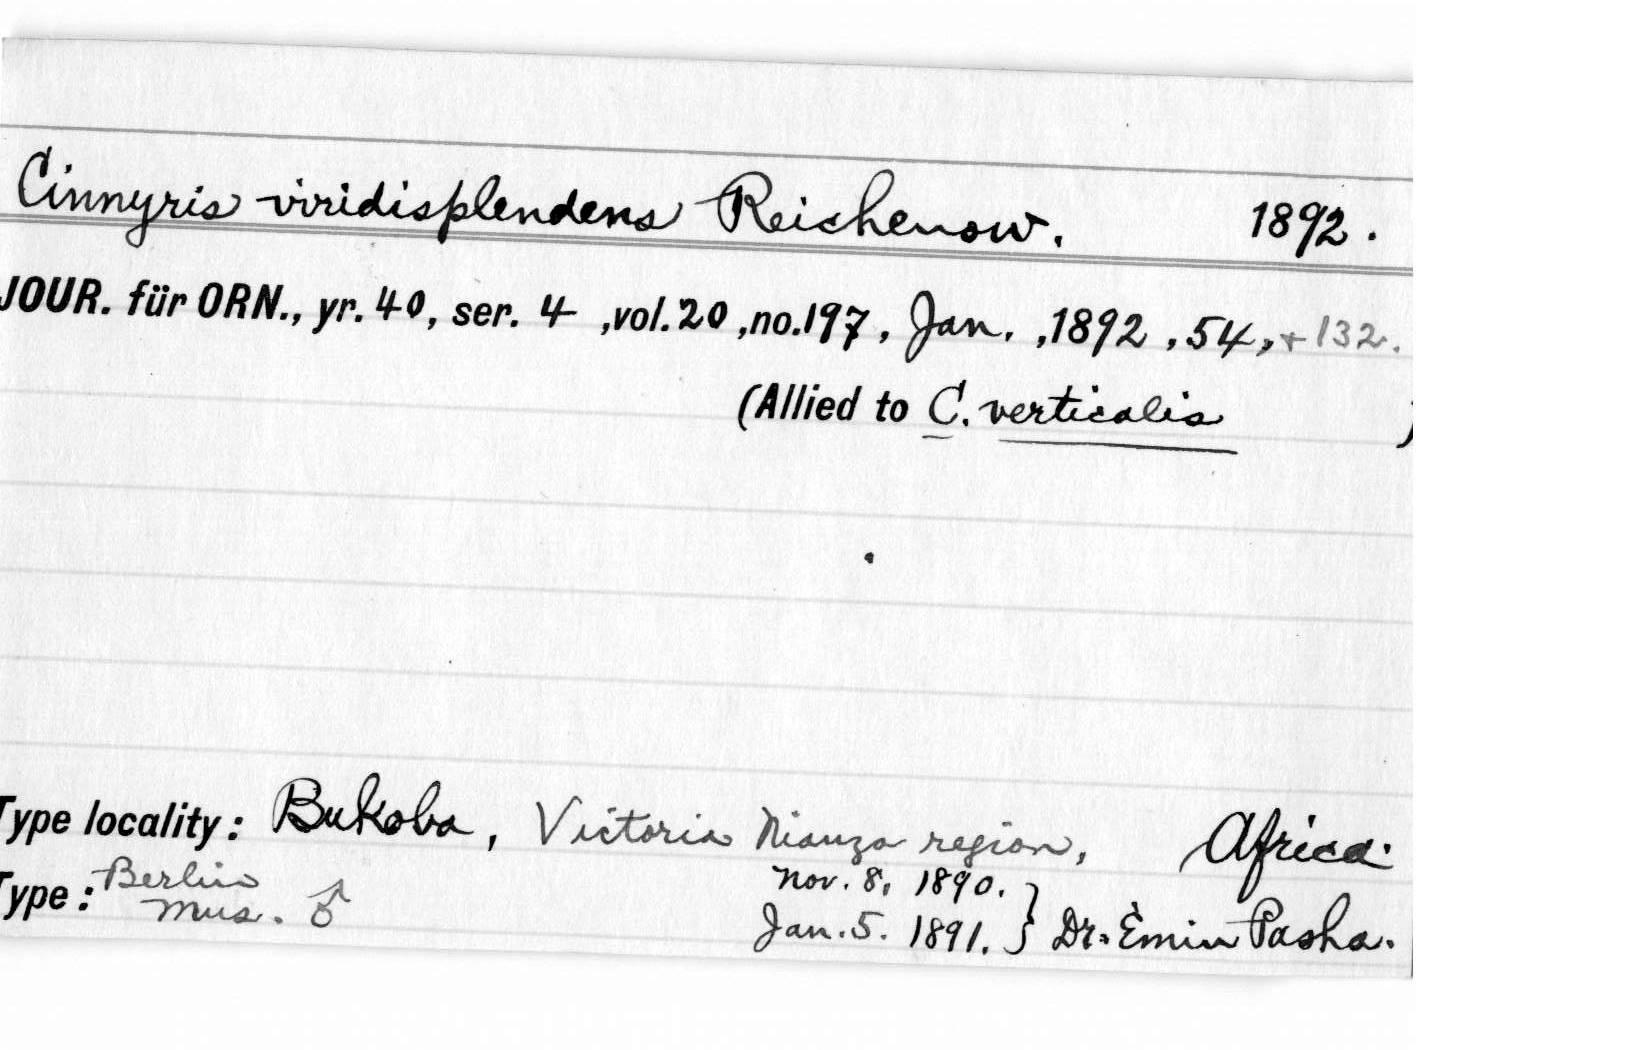 Cinnyris viridisplendens Reichenow. 1892.
JOUR. für ORN., yr. 40, ser. 4 ,vol. 20 ,no. 197, Jan. ,1892 ,54, + 132.
(Allied to C. verticalis )
Type locality: Bukoba, Victoria Nianza region, Africa.
Nov. 8, 1890. }
Type: Berlin Mus. ♂ Jan. 5. 1891. } Dr. Emin Pasha.